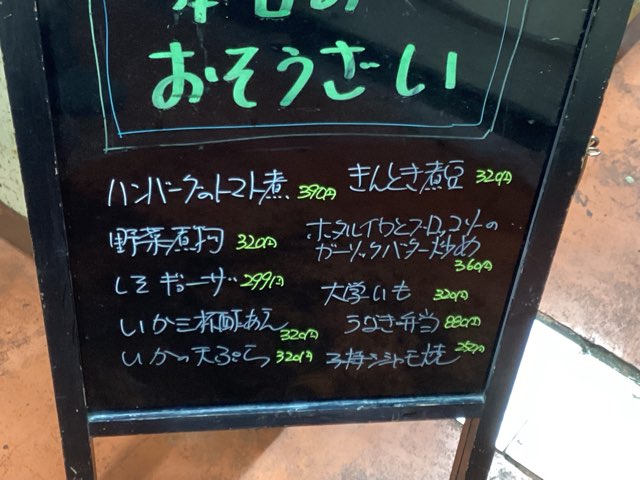 本日の
おそうざい
ハンバーグのトマト煮 390円
野菜煮物 320円
しそギョーザ 299円
いか三杯酢あえ 320円
いかの天ぷら 320円
きんとき煮豆 320円
ホタルイカとブロッコリーの
ガーリックバター炒め
360円
大学いも 320円
うなぎ弁当 880円
子持シシャモ焼